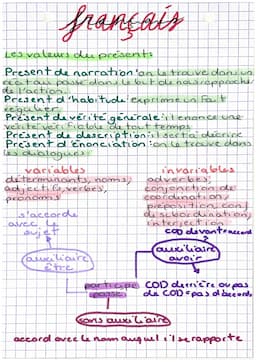 français
Les valeurs du présent:
Présent de narration: on le trouve dans un
récit au passé dans le but de nous rapprocher
de l'action.
Présent d'habitude: exprime un fait
régulier
Présent de vérité générale: il énonce une
vérité vérifiable de tout temps
Présent de description: il sert à décrire
Présent d'énonciation: on le trouve dans
les dialogues
variables
déterminants, noms,
adjectifs, verbes,
pronoms
invariables
adverbes,
conjonction de
coordination,
préposition, conj
de subordination,
interjection
s'accorde
avec le
sujet
auxiliaire
être
COD devant=accord
auxiliaire
avoir
participe
passé
COD derrière ou pas
de COD=pas d'accords
sans auxiliaire
accord avec le nom auquel il se rapporte